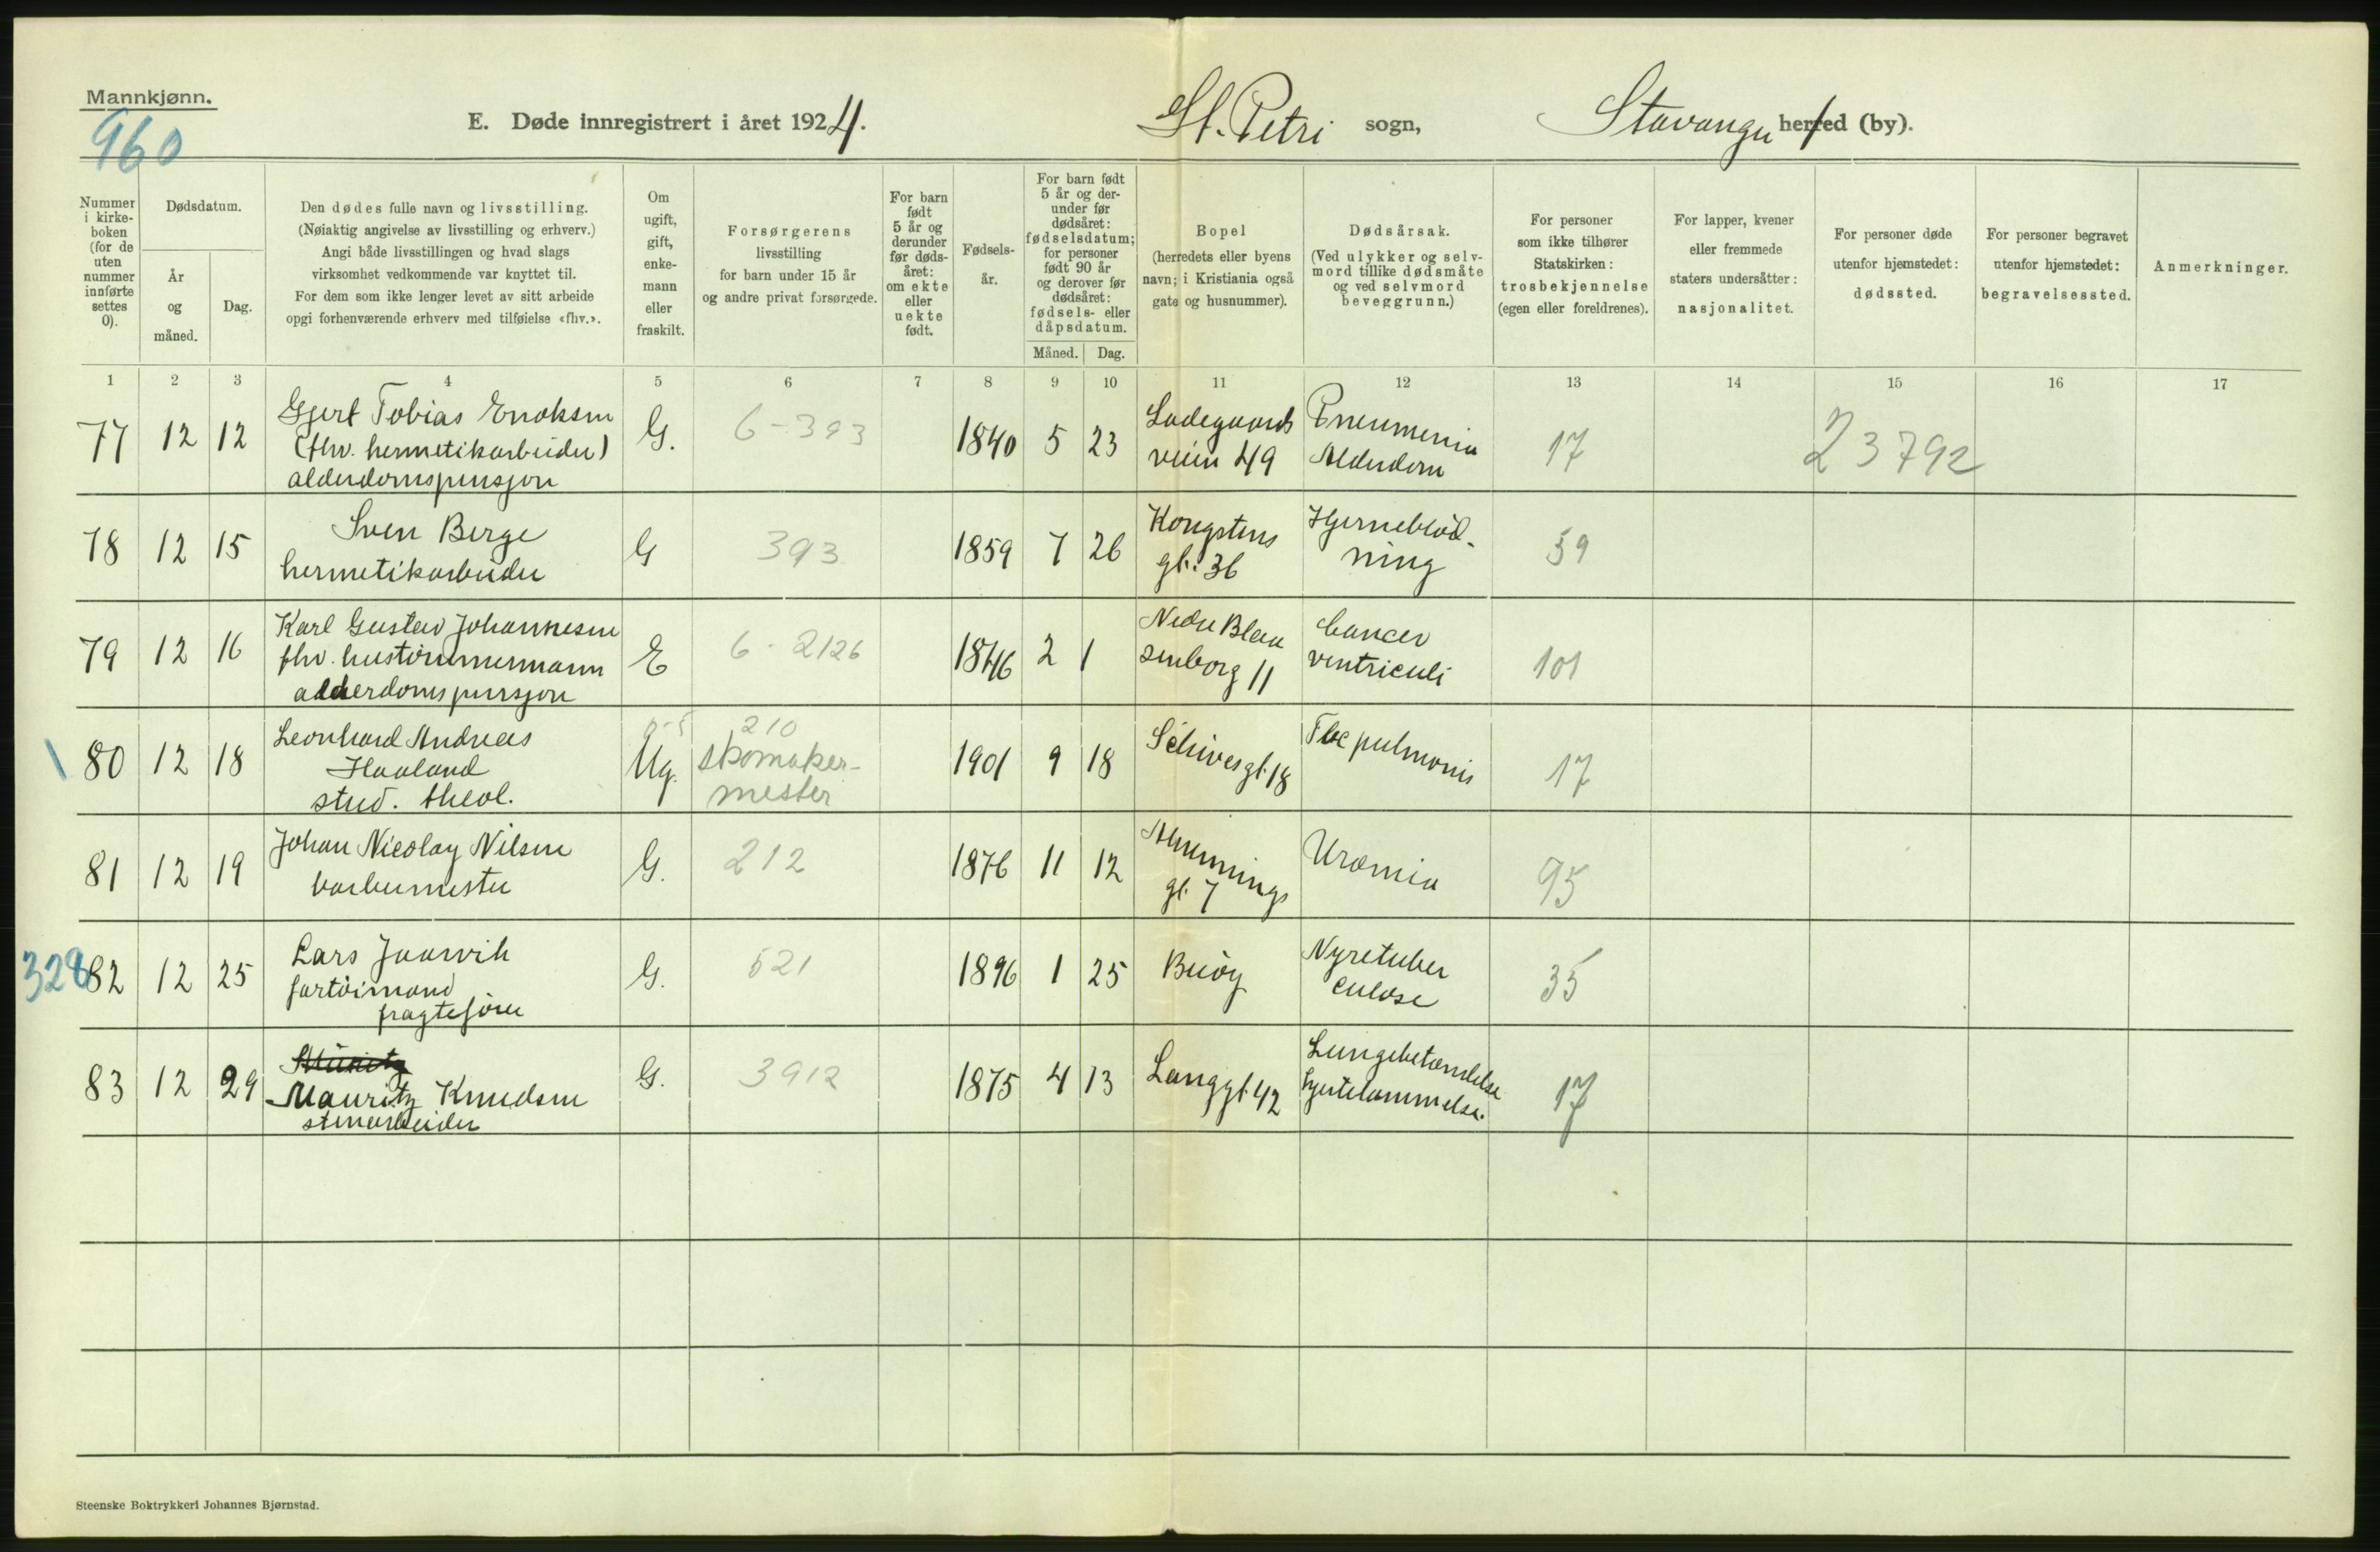 Mannkjønn.
960
E. Døde innregistrert i året 1924.
St. Petri sogn,
Stavanger herred (by).
Nummer i kirkeboken (for de uten nummer innførte settes 0).
Dødsdatum.
År og måned.
Dag.
Den dødes fulle navn og livsstilling.
(Nøiaktig angivelse av livsstilling og erhverv.)
Angi både livsstillingen og hvad slags
virksomhet vedkommende var knyttet til.
For dem som ikke lenger levet av sitt arbeide
opgi forhenværende erhverv med tilføielse «fhv.».
Om ugift, gift, enkemann eller fraskilt.
Forsørgerens
livsstilling
for barn under 15 år
og andre privat forsørgede.
For barn født 5 år og derunder før dødsåret: om ekte eller uekte født.
Fødselsår.
For barn født 5 år og derunder før dødsåret: fødselsdatum; for personer født 90 år og derover før dødsåret: fødsels- eller dåpsdatum.
Måned. Dag.
Bopel
(herredets eller byens
navn; i Kristiania også
gate og husnummer).
Dødsårsak.
(Ved ulykker og selvmord tillike dødsmåte og ved selvmord beveggrunn.)
For personer
som ikke tilhører
Statskirken:
trosbekjennelse
(egen eller foreldrenes).
For lapper, kvener
eller fremmede
staters undersåtter:
nasjonalitet.
For personer døde
utenfor hjemstedet:
dødssted.
For personer begravet
utenfor hjemstedet:
begravelsessted.
Anmerkninger.
1 2 3 4 5 6 7 8 9 10 11 12 13 14 15 16 17
77 12 12 Gjert Tobias Enoksen (fhv. hermetikarbeider) alderdomspensjon G. 6-393 1840 5 23 Ladegaardsveien 49 Pneumenia Alderdom 17 23792
78 12 15 Sven Berge hermetikarbeider G 393 1859 7 26 Kongstens gt. 36 Hjerneblødning 59
79 12 16 Karl Gustav Johannesen fhv. hustømmermann alderdomspensjon E 6-2126 1846 2 1 Nedre Blaasenborg 11 Cancer ventriculi 101
80 12 18 Leonhard Andreas Haaland stud. theol. Ug. 210 skomakermester 1901 9 18 Schives gt. 18 Tbc pulmonis 17
81 12 19 Johan Nicolay Nilsen barbermester G. 212 1876 11 12 gt. 7 Uræmia 95
328 82 12 25 Lars fartøimand fragtefører G. 521 1896 1 25 Buøy Nyretuberculose 35
83 12 29 Mauritz Knudsen stenarbeider G. 3912 1875 4 13 Langgt. 42 Lungebetændelse hjertelammelse. 17
Steenske Boktrykkeri Johannes Bjørnstad.